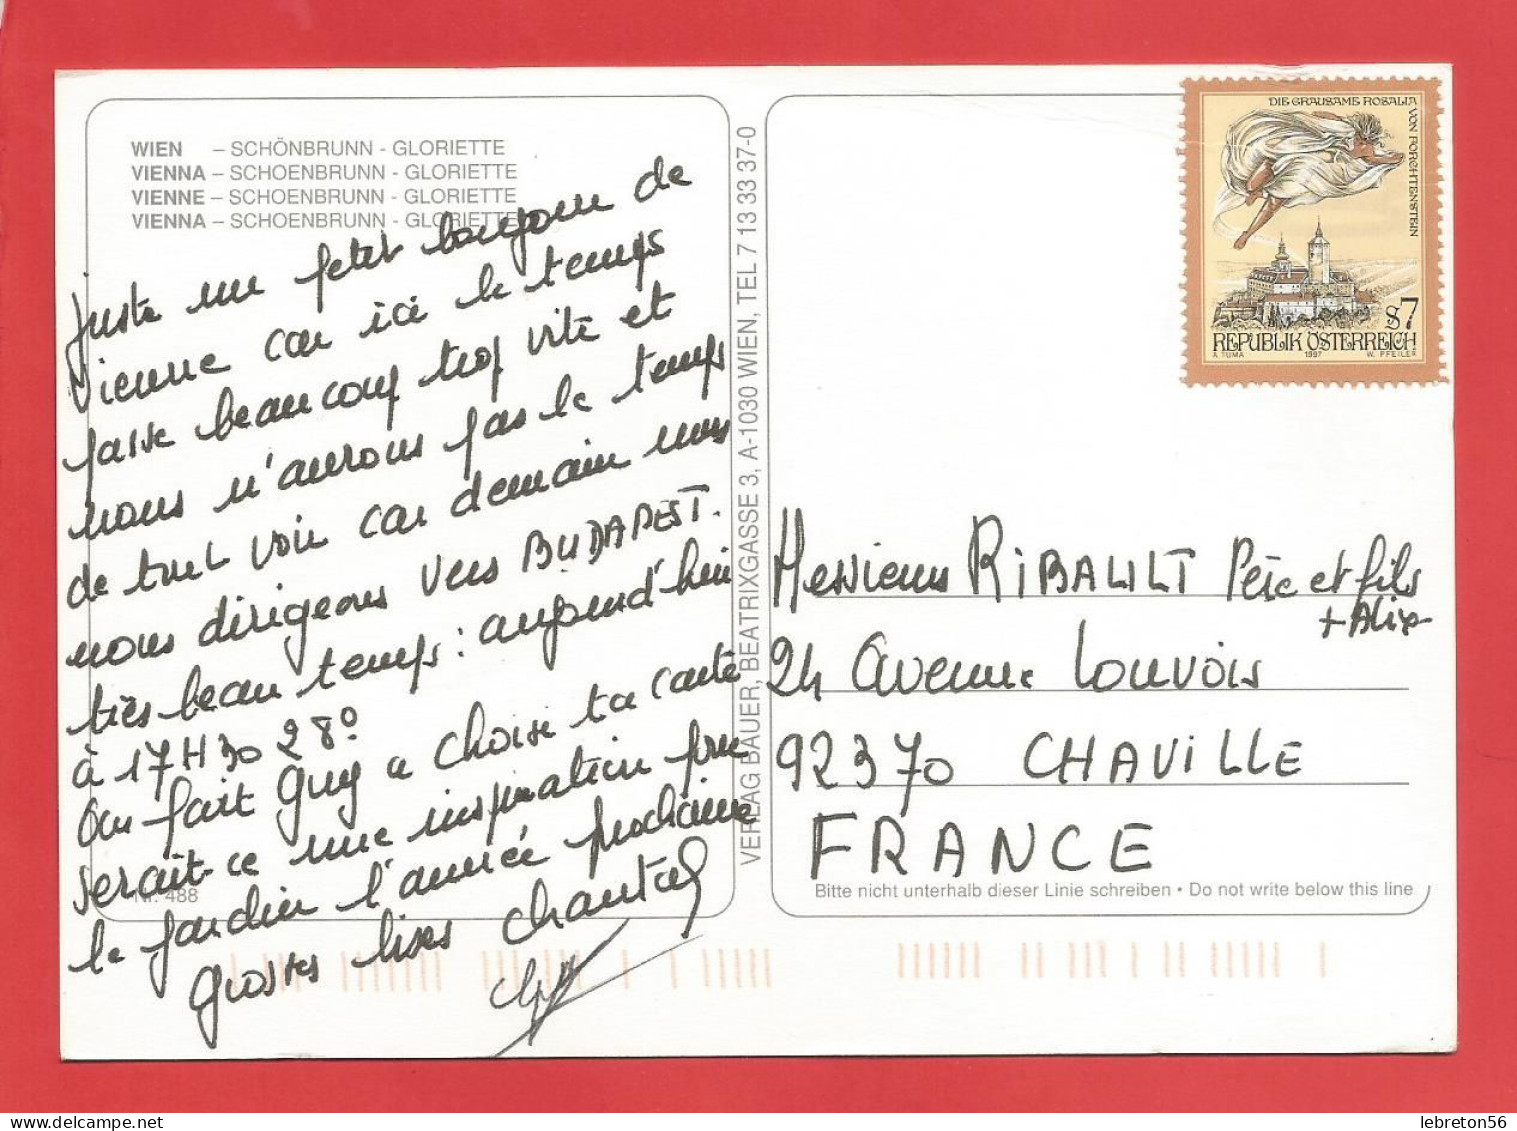 WIEN – SCHÖNBRUNN - GLORIETTE
VIENNA – SCHOENBRUNN - GLORIETTE
VIENNE – SCHOENBRUNN - GLORIETTE
VIENNA – SCHOENBRUNN - GLORIETTE
Juste un petit bonjour de
Vienne car ici le temps
passe beaucoup trop vite et
nous n'aurons pas le temps
de tout voir car demain nous
nous dirigeons vers BUDAPEST.
très beau temps : aujourd'hui
à 17H30 28°
Au fait Guy a choisi ta carte
serait-ce une inspiration pour
le jardin l'année prochaine
Grosses bises Chantal
Guy
Nr. 488
VERLAG BAUER, BEATRIXGASSE 3, A-1030 WIEN, TEL 7 13 33 37-0
DIE GRAUSAME ROSALIA VON FORCHTENSTEIN
S7
REPUBLIK ÖSTERREICH
A. TUMA 1997 W. PFEILER
Messieurs RIBAULT Père et fils
+ Alix
24 avenue Louvois
92370 CHAVILLE
FRANCE
Bitte nicht unterhalb dieser Linie schreiben • Do not write below this line
lebreton56